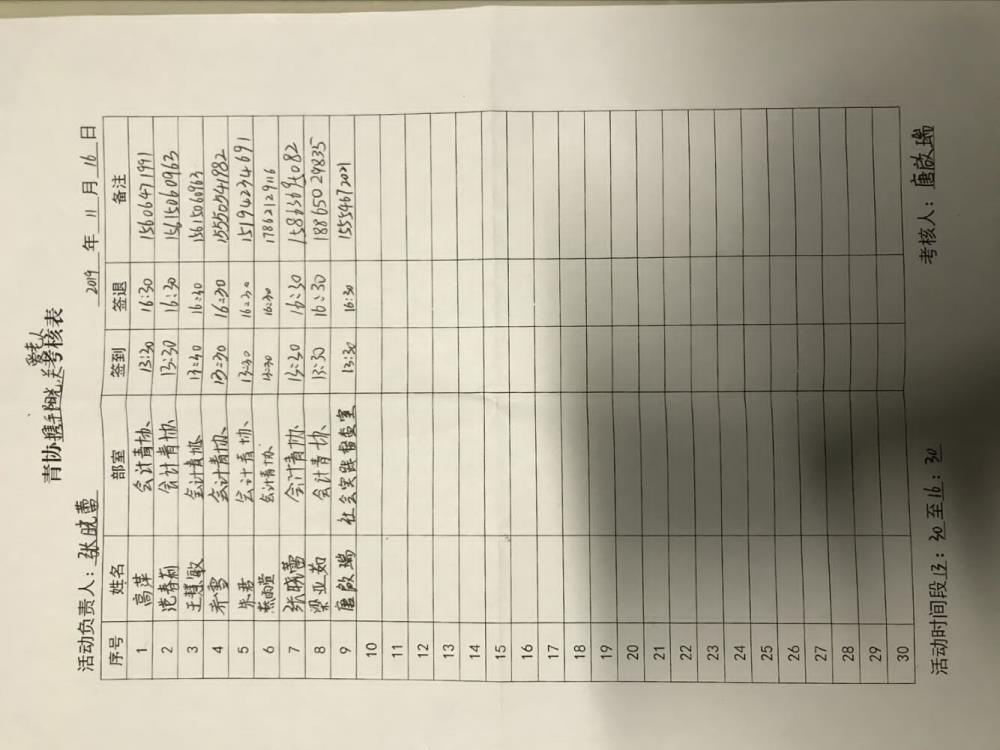 青协携手阳光,关爱老人考核表
活动负责人：张晓蕾 2019 年 11 月 16 日
序号 姓名 部室 签到 签退 备注
1 高萍 会计青协 13:30 16:30 15606471991
2 范春莉 会计青协 13:30 16:30 15615060963
3 王慧敏 会计青协 13:30 16:30 15615060963
4 会计青协 13:30 16:30 15550541982
5 会计青协 13:30 16:30 15194234691
6 会计青协 13:30 16:30 17862129116
7 张晓蕾 会计青协 13:30 16:30
8 梁亚茹 会计青协 13:30 16:30 18865029835
9 唐啟瑞 社会实践督查室 13:30 16:30 15554672021
10
11
12
13
14
15
16
17
18
19
20
21
22
23
24
25
26
27
28
29
30
活动时间段13：30至16：30 考核人：唐啟瑞